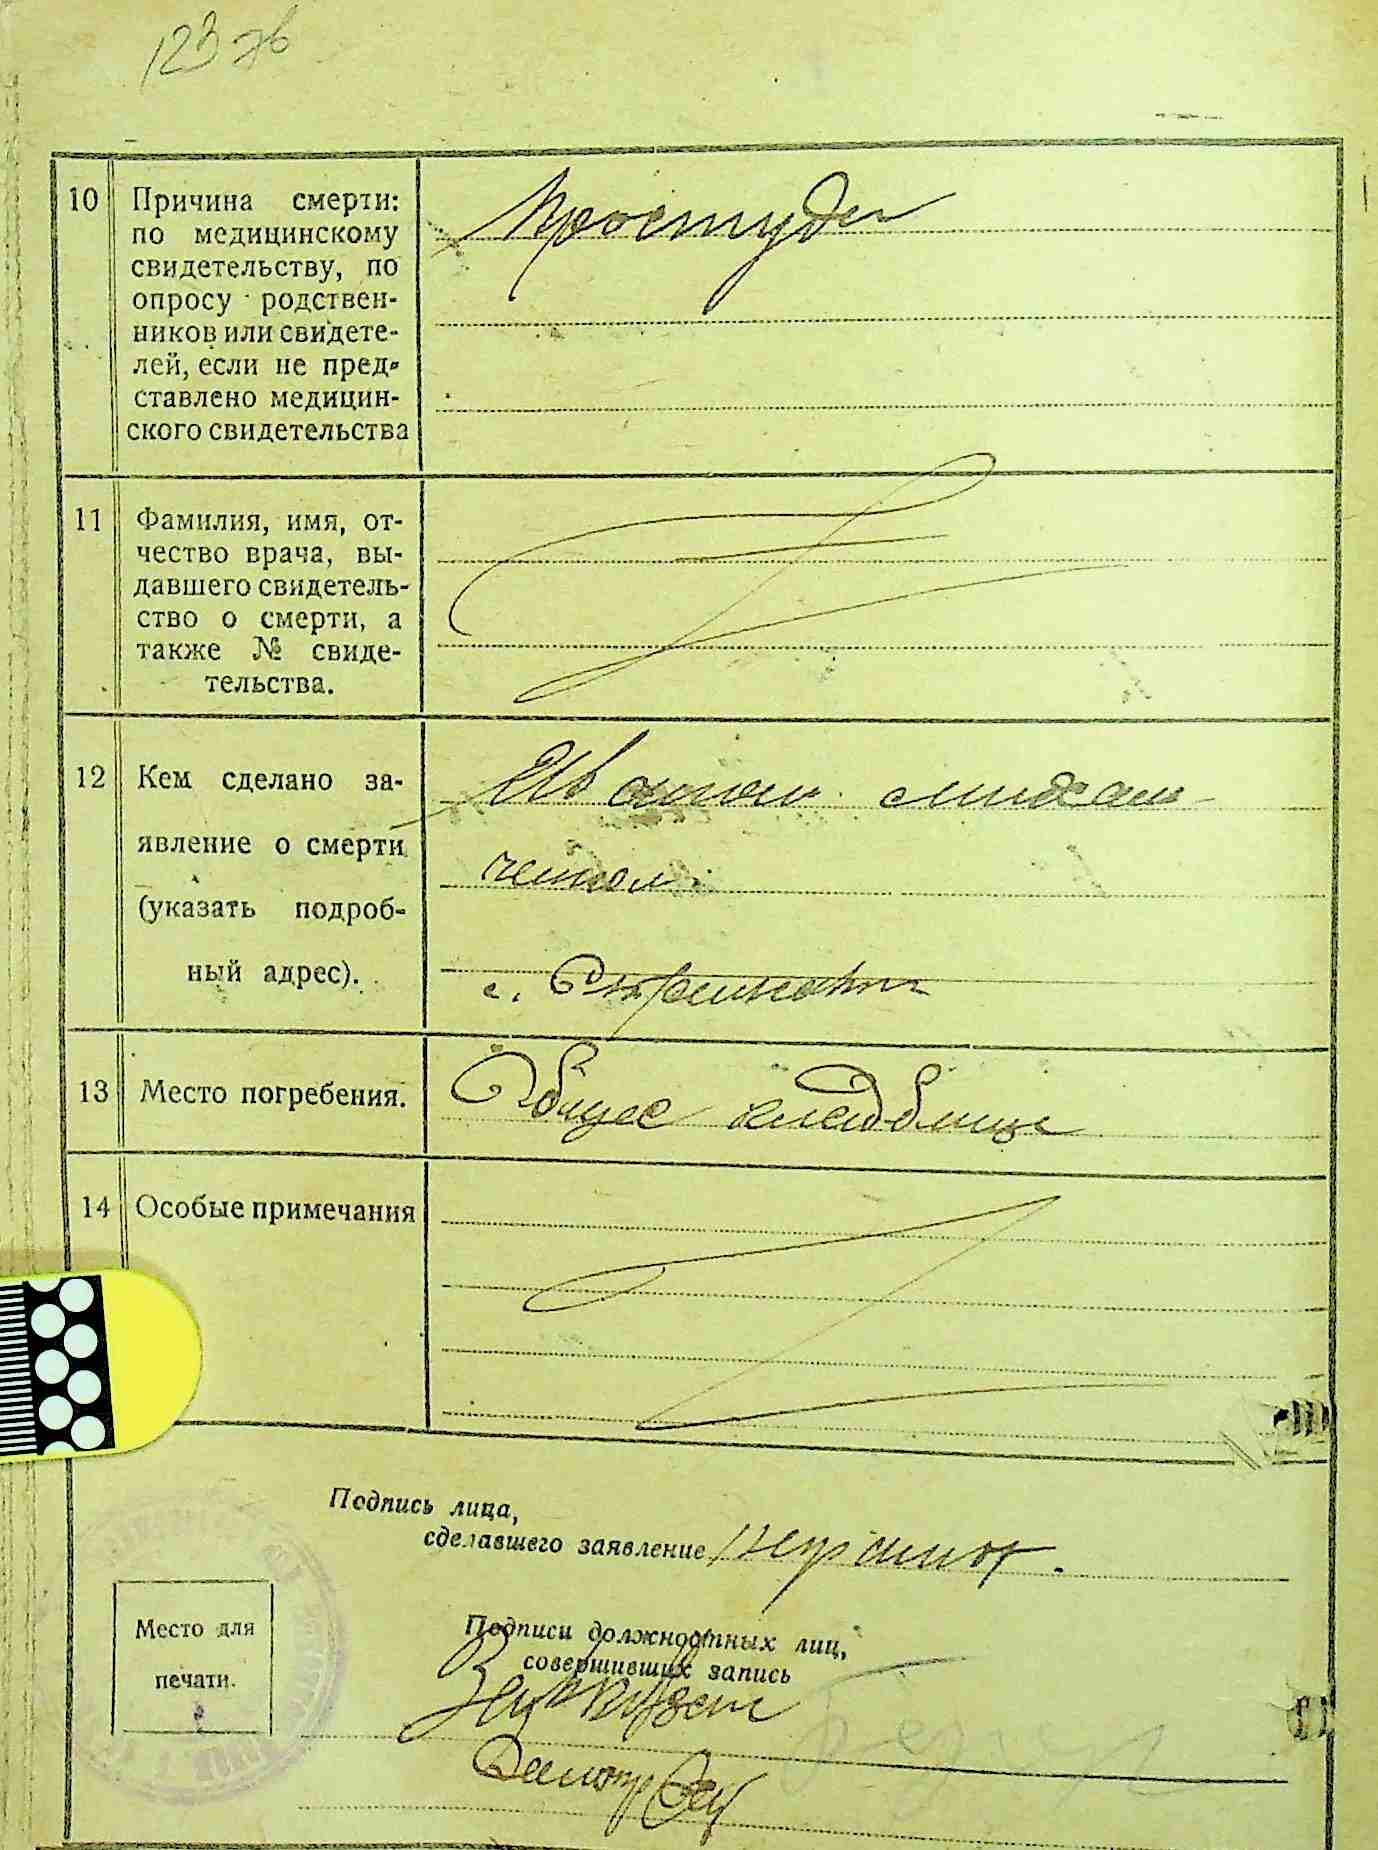 123 зв
10 Причина смерти:
по медицинскому
свидетельству, по
опросу родствен-
ников или свидете-
лей, если не пред-
ставлено медицин-
ского свидетельства
Простуда
11 Фамилия, имя, от-
чество врача, вы-
давшего свидетель-
ство о смерти, а
также № свиде-
тельства.
12 Кем сделано за-
явление о смерти
(указать подроб-
ный адрес).
с.
13 Место погребения.
Общее кладбище
14 Особые примечания
Подпись лица,
сделавшего заявление
Место для
печати.
Подписи должностных лиц,
совершивших запись